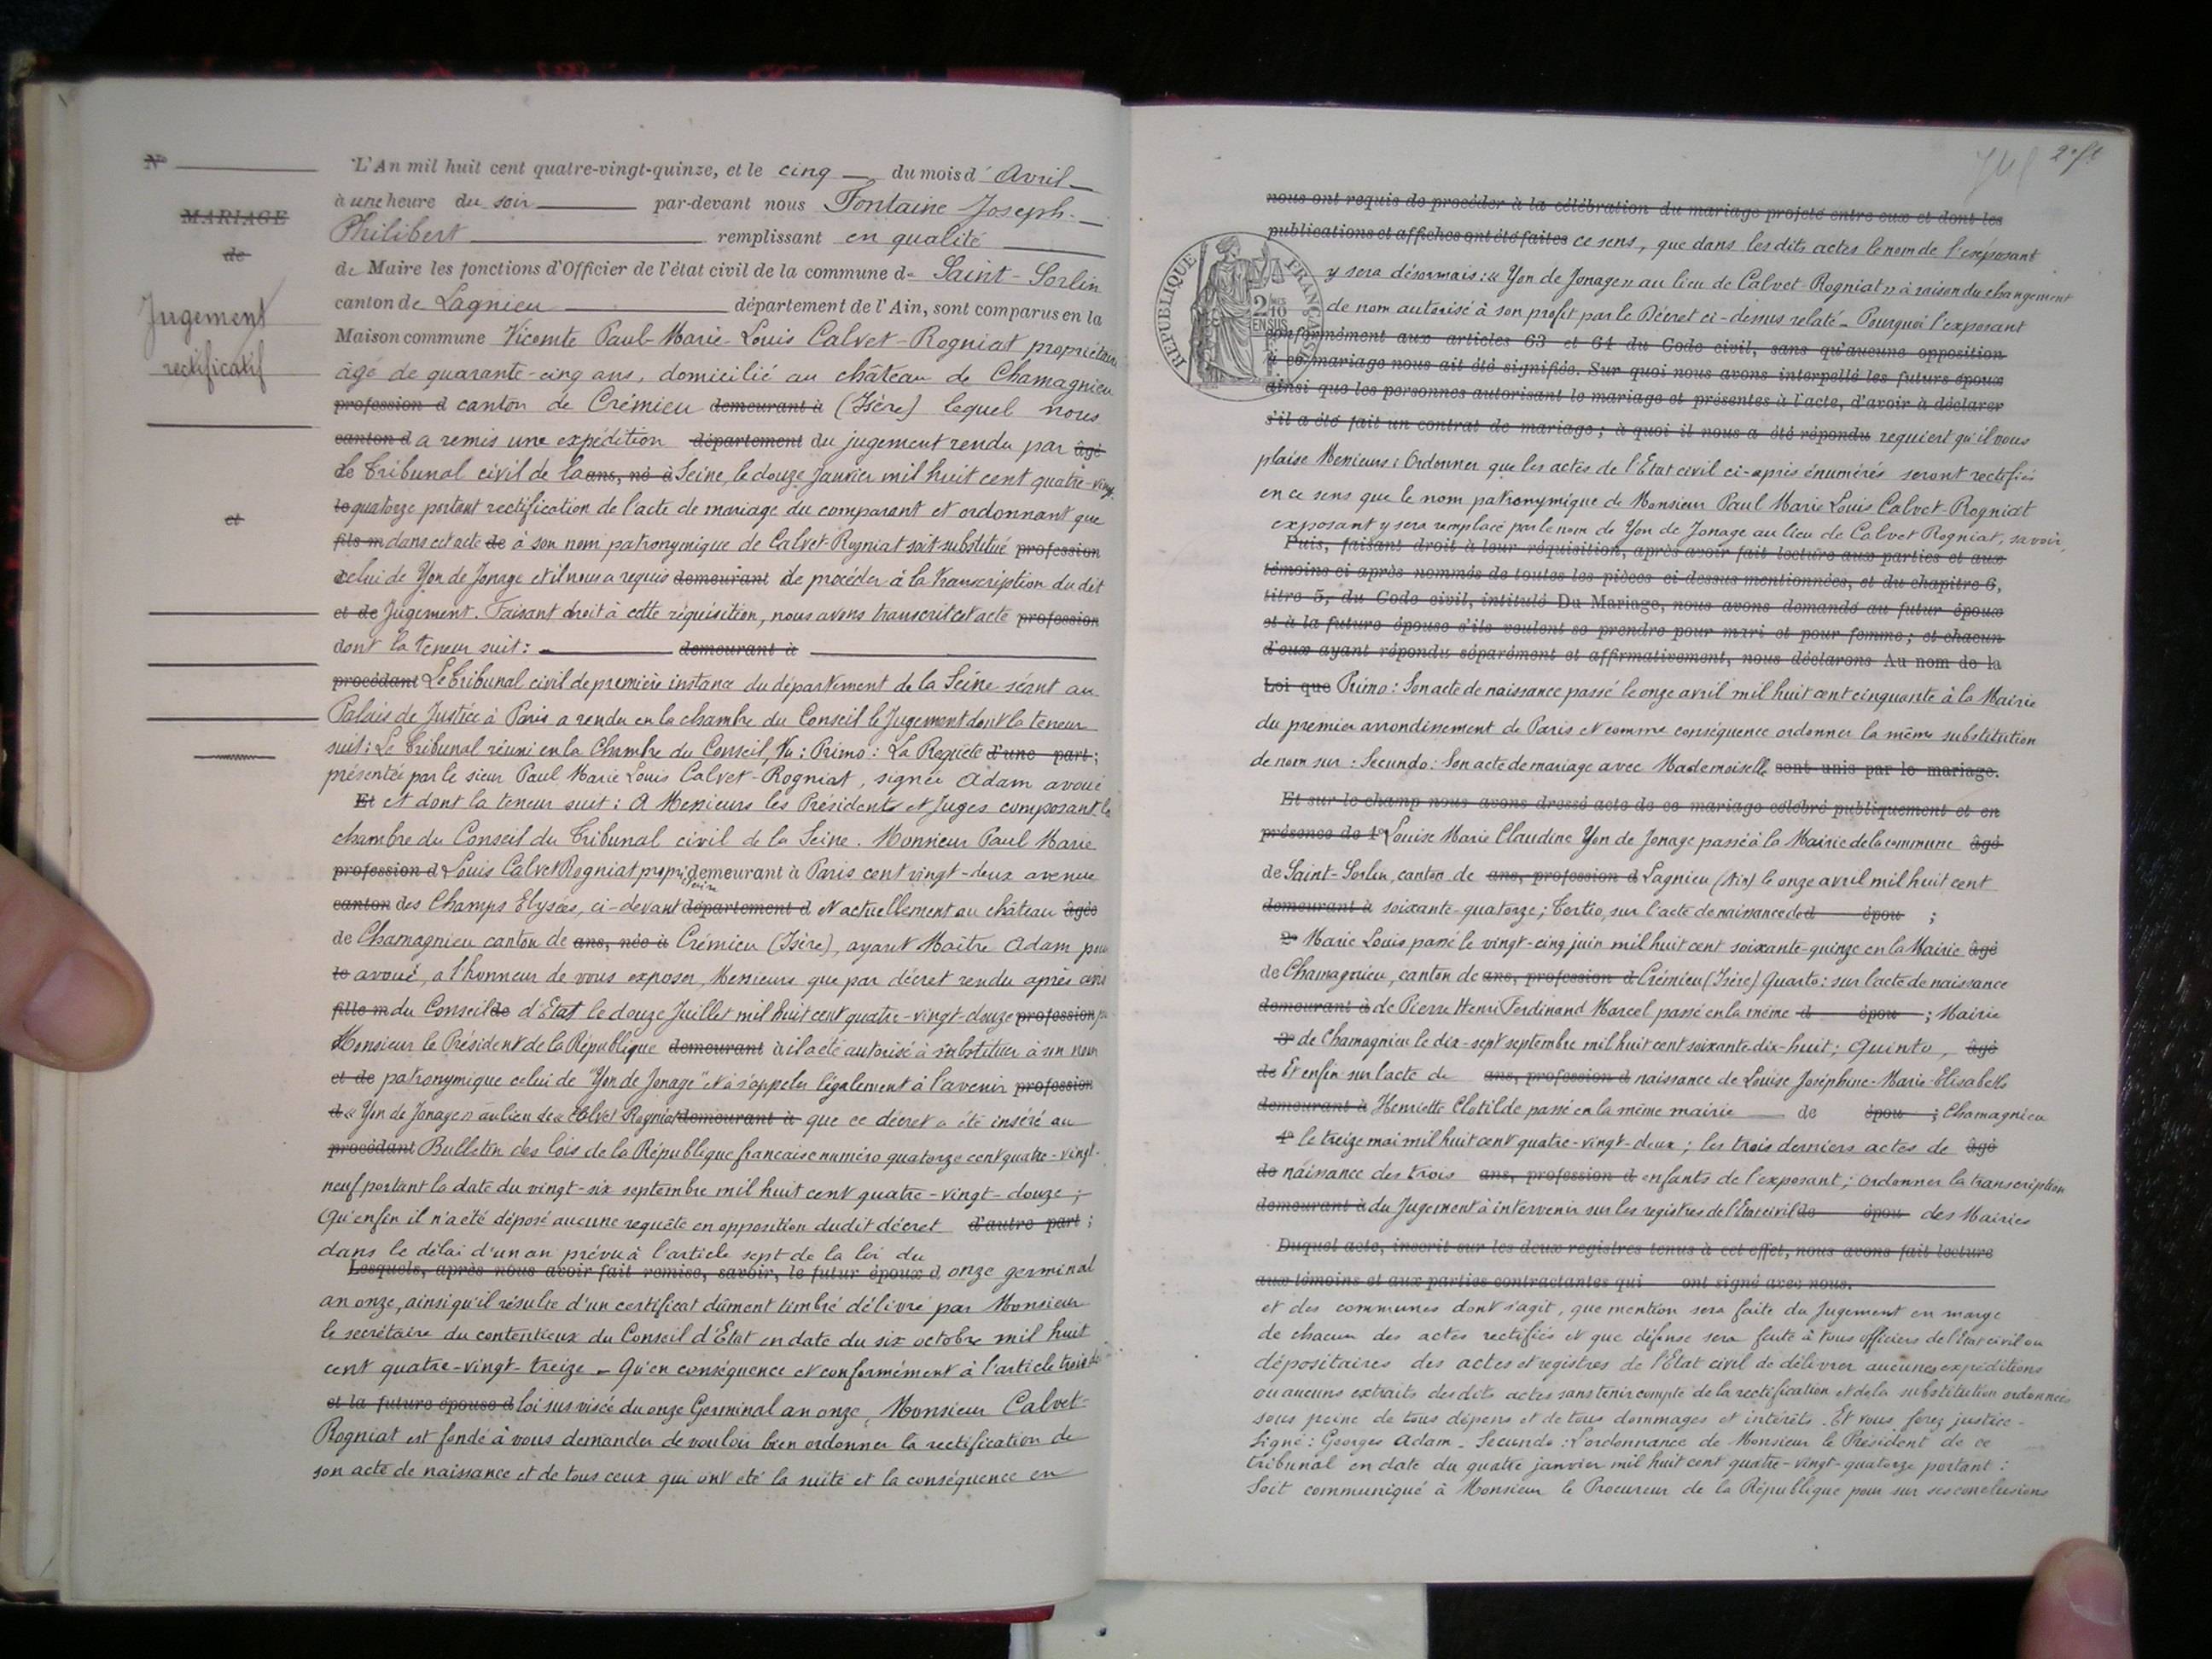 N°
MARIAGE
de
Jugement
rectificatif
et
L'An mil huit cent quatre-vingt-quinze, et le cinq du mois d'Avril
à une heure du soir par-devant nous Fontaine Joseph-
Philibert remplissant en qualité
de Maire les fonctions d'Officier de l'état civil de la commune de Saint-Sorlin
canton de Lagnieu département de l'Ain, sont comparus en la
Maison commune Vicomte Paul-Marie-Louis Calvet-Rogniat propriétaire
âgé de quarante-cinq ans, domicilié au château de Chamagnieu
profession d canton de Crémieu demeurant à (Isère) lequel nous
canton d a remis une expédition département du jugement rendu par âgé
Le Tribunal civil de la ans, né à Seine, le douze Janvier mil huit cent quatre-vingt
le quatorze portant rectification de l'acte de mariage du comparant et ordonnant que
fils m dans cet acte de à son nom patronymique de Calvet Rogniat soit substitué profession
celui de Yon de Jonage et il nous a requis demeurant de procéder à la transcription du dit
et de Jugement. Faisant droit à cette réquisition, nous avons transcrit cet acte profession
dont la teneur suit : demeurant à
procédant Le Tribunal civil de première instance du département de la Seine séant au
Palais de Justice à Paris a rendu en la chambre du Conseil le Jugement dont la teneur
suit : Le Tribunal réuni en la Chambre du Conseil, Vu : Primo : La Requête d'une part ;
présentée par le sieur Paul Marie Louis Calvet-Rogniat, signée Adam avoué
Et et dont la teneur suit : A Messieurs les Présidents et Juges composant la
chambre du Conseil du Tribunal civil de la Seine. Monsieur Paul Marie
profession d Louis Calvet Rogniat propriétaire demeurant à Paris cent vingt-deux avenue
canton des Champs Elysées, ci-devant département d et actuellement au château âgée
de Chamagnieu canton de ans, née à Crémieu (Isère), ayant Maître Adam pour
le avoué, a l'honneur de vous exposer, Messieurs que par décret rendu après avis
fille m du Conseil de d'Etat le douze Juillet mil huit cent quatre-vingt-douze profession par
Monsieur le Président de la République demeurant à il a été autorisé à substituer à son nom
et de patronymique celui de "Yon de Jonage" et à s'appeler légalement à l'avenir profession
d « Yon de Jonage » au lieu de « Calvet Rogniat demeurant à que ce décret a été inséré au
procédant Bulletin des lois de la République francaise numéro quatorze cent quatre-vingt-
neuf portant la date du vingt-six septembre mil huit cent quatre-vingt-douze ;
Qu'enfin il n'a été déposé aucune requête en opposition dudit décret d'autre part ;
dans le délai d'un an prévu à l'article sept de la loi du
Lesquels, après nous avoir fait remise, savoir, le futur époux d onze germinal
an onze, ainsi qu'il résulte d'un certificat dûment timbré délivré par Monsieur
le secrétaire du contentieux du Conseil d'Etat en date du six octobre mil huit
cent quatre-vingt-treize - Qu'en conséquence et conformément à l'article trois de
et la future épouse d loi sus visée du onze Germinal an onze, Monsieur Calvet-
Rogniat est fondé à vous demander de vouloir bien ordonner la rectification de
son acte de naissance et de tous ceux qui ont été la suite et la conséquence en
2e ft
nous ont requis de procéder à la célébration du mariage projeté entre eux et dont les
publications et affiches ont été faites ce sens, que dans les dits actes le nom de l'exposant
y sera désormais : « Yon de Jonage » au lieu de Calvet-Rogniat » à raison du changement
de nom autorisé à son profit par le Décret ci-dessus relaté - Pourquoi l'exposant
REPUBLIQUE FRANÇAISE
2/10 EN SUS
conformément aux articles 63 et 64 du Code civil, sans qu'aucune opposition
à ce mariage nous ait été signifiée. Sur quoi nous avons interpellé les futurs époux
ainsi que les personnes autorisant le mariage et présentes à l'acte, d'avoir à déclarer
s'il a été fait un contrat de mariage ; à quoi il nous a été répondu requiert qu'il vous
plaise Messieurs : Ordonner que les actes de l'Etat civil ci-après énumérés seront rectifiés
en ce sens que le nom patronymique de Monsieur Paul Marie Louis Calvet-Rogniat
exposant y sera remplacé par le nom de Yon de Jonage au lieu de Calvet Rogniat, savoir,
Puis, faisant droit à leur réquisition, après avoir fait lecture aux parties et aux
témoins ci après nommés de toutes les pièces ci dessus mentionnées, et du chapitre 6,
titre 5, du Code civil, intitulé Du Mariage, nous avons demandé au futur époux
et à la future épouse s'ils veulent se prendre pour mari et pour femme ; et chacun
d'eux ayant répondu séparément et affirmativement, nous déclarons Au nom de la
Loi que Primo : Son acte de naissance passé le onze avril mil huit cent cinquante à la Mairie
du premier arrondissement de Paris et comme conséquence ordonner la même substitution
de nom sur : Secundo : Son acte de mariage avec Mademoiselle sont unis par le mariage.
Et sur le champ nous avons dressé acte de ce mariage célébré publiquement et en
présence de 1° Louise Marie Claudine Yon de Jonage passé à la Mairie de la commune âgé
de Saint-Sorlin, canton de ans, profession d Lagnieu (Ain) le onze avril mil huit cent
demeurant à soixante-quatorze ; Tertio, sur l'acte de naissance de d épou ;
2° Marie Louis passé le vingt-cinq juin mil huit cent soixante-quinze en la Mairie âgé
de Chamagnieu, canton de ans, profession d Crémieu (Isère) Quarto : sur l'acte de naissance
demeurant à de Pierre Henri Ferdinand Marcel passé en la même d épou ; Mairie
3° de Chamagnieu le dix-sept septembre mil huit cent soixante-dix-huit ; Quinto, âgé
de Et enfin sur l'acte de ans, profession d naissance de Louise Joséphine-Marie-Elisabeth
demeurant à Henriette Clotilde passé en la même mairie de épou ; Chamagnieu
4° le treize mai mil huit cent quatre-vingt-deux ; les trois derniers actes de âgé
de naissance des trois ans, profession d enfants de l'exposant ; ordonner la transcription
demeurant à du Jugement à intervenir sur les registres de l'Etat civil de épou des Mairies
Duquel acte, inscrit sur les deux registres tenus à cet effet, nous avons fait lecture
aux témoins et aux parties contractantes qui ont signé avec nous.
et des communes dont s'agit, que mention sera faite du Jugement en marge
de chacun des actes rectifiés et que défense sera faite à tous officiers de l'Etat civil ou
dépositaires des actes et registres de l'Etat civil de délivrer aucunes expéditions
ou aucuns extraits desdits actes sans tenir compte de la rectification et de la substitution ordonnées
sous peine de tous dépens et de tous dommages et intérêts. Et vous ferez justice -
Signé : Georges Adam - Secundo : L'ordonnance de Monsieur le Président de ce
tribunal en date du quatre janvier mil huit cent quatre-vingt-quatorze portant :
Soit communiqué à Monsieur le Procureur de la République pour sur ses conclusions